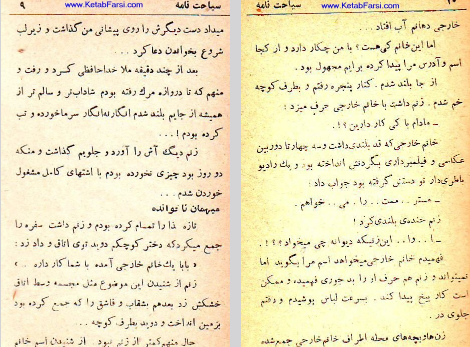 www.KetabFarsi.com
سیاحت نامه ۹
میداد دست دیگرش را روی پیشانی من گذاشت و زیر لب
شروع بخواندن دعا کرد...
بعد از چند دقیقه ملا خداحافظی کرد و رفت و
منهم که تا دروازه مرگ رفته بودم شاداب‌تر و سالم تر از
همیشه از جایم بلند شدم انگارنه‌انگار سرماخورده و تب
کرده بودم!...
زنم دیگ آش را آورد و جلویم گذاشت و منکه
دو روز بود چیزی نخورده بودم با اشتهای کامل مشغول
خوردن شدم...
میهمان ناخوانده
تازه غذا را تمام کرده بودم و زنم داشت سفره را
جمع میکرد که دختر کوچکم دوید توی اتاق و داد زد:
ـ بابا یك خانم خارجی آمده با شما کار داره..
زنم از شنیدن این موضوع مثل مجسمه وسط اتاق
خشکش زد بعدهم بشقاب و قاشق را که جمع کرده بود
بزمین انداخت و دوید بطرف کوچه...
حال منهم کمتر از زنم نبود. از شنیدن اسم خانم
www.KetabFarsi.com
سیاحت نامه
خارجی دهانم آب افتاد...
اما این خانم کی هست؟ با من چکار دارد و از کجا
اسم و آدرس مرا پیدا کرده برایم مجهول بود.
از جا بلند شدم. کنار پنجره رفتم و بطرف کوچه
خم شدم. زنم داشت با خانم خارجی حرف میزد:
ـ مادام با کی کار دارین؟!.
خانم خارجی که قد بلندی داشت و سه چهار تا دوربین
عکاسی و فیلمبرداری بگردنش انداخته بود و یك رادیو
باطری‌دار تو دستش گرفته بود جواب داد:
ـ مستر.. ممت.. را.. می.. خواهم.
زنم خنده‌ی بلندی کرد!
ـ ا.. وا.. این زنیکه دیوانه چی میخواد؟؟!.
فهمیدم خانم خارجی میخواهد اسم مرا بگوید اما
نمیتواند و زنم هم حرف او را بد جوری فهمیده و ممکن
است کار بیخ پیدا کند. بسرعت لباس پوشیدم و رفتم
جلوی در.
زن‌ها و بچه‌های محله اطراف خانم خارجی جمع شده